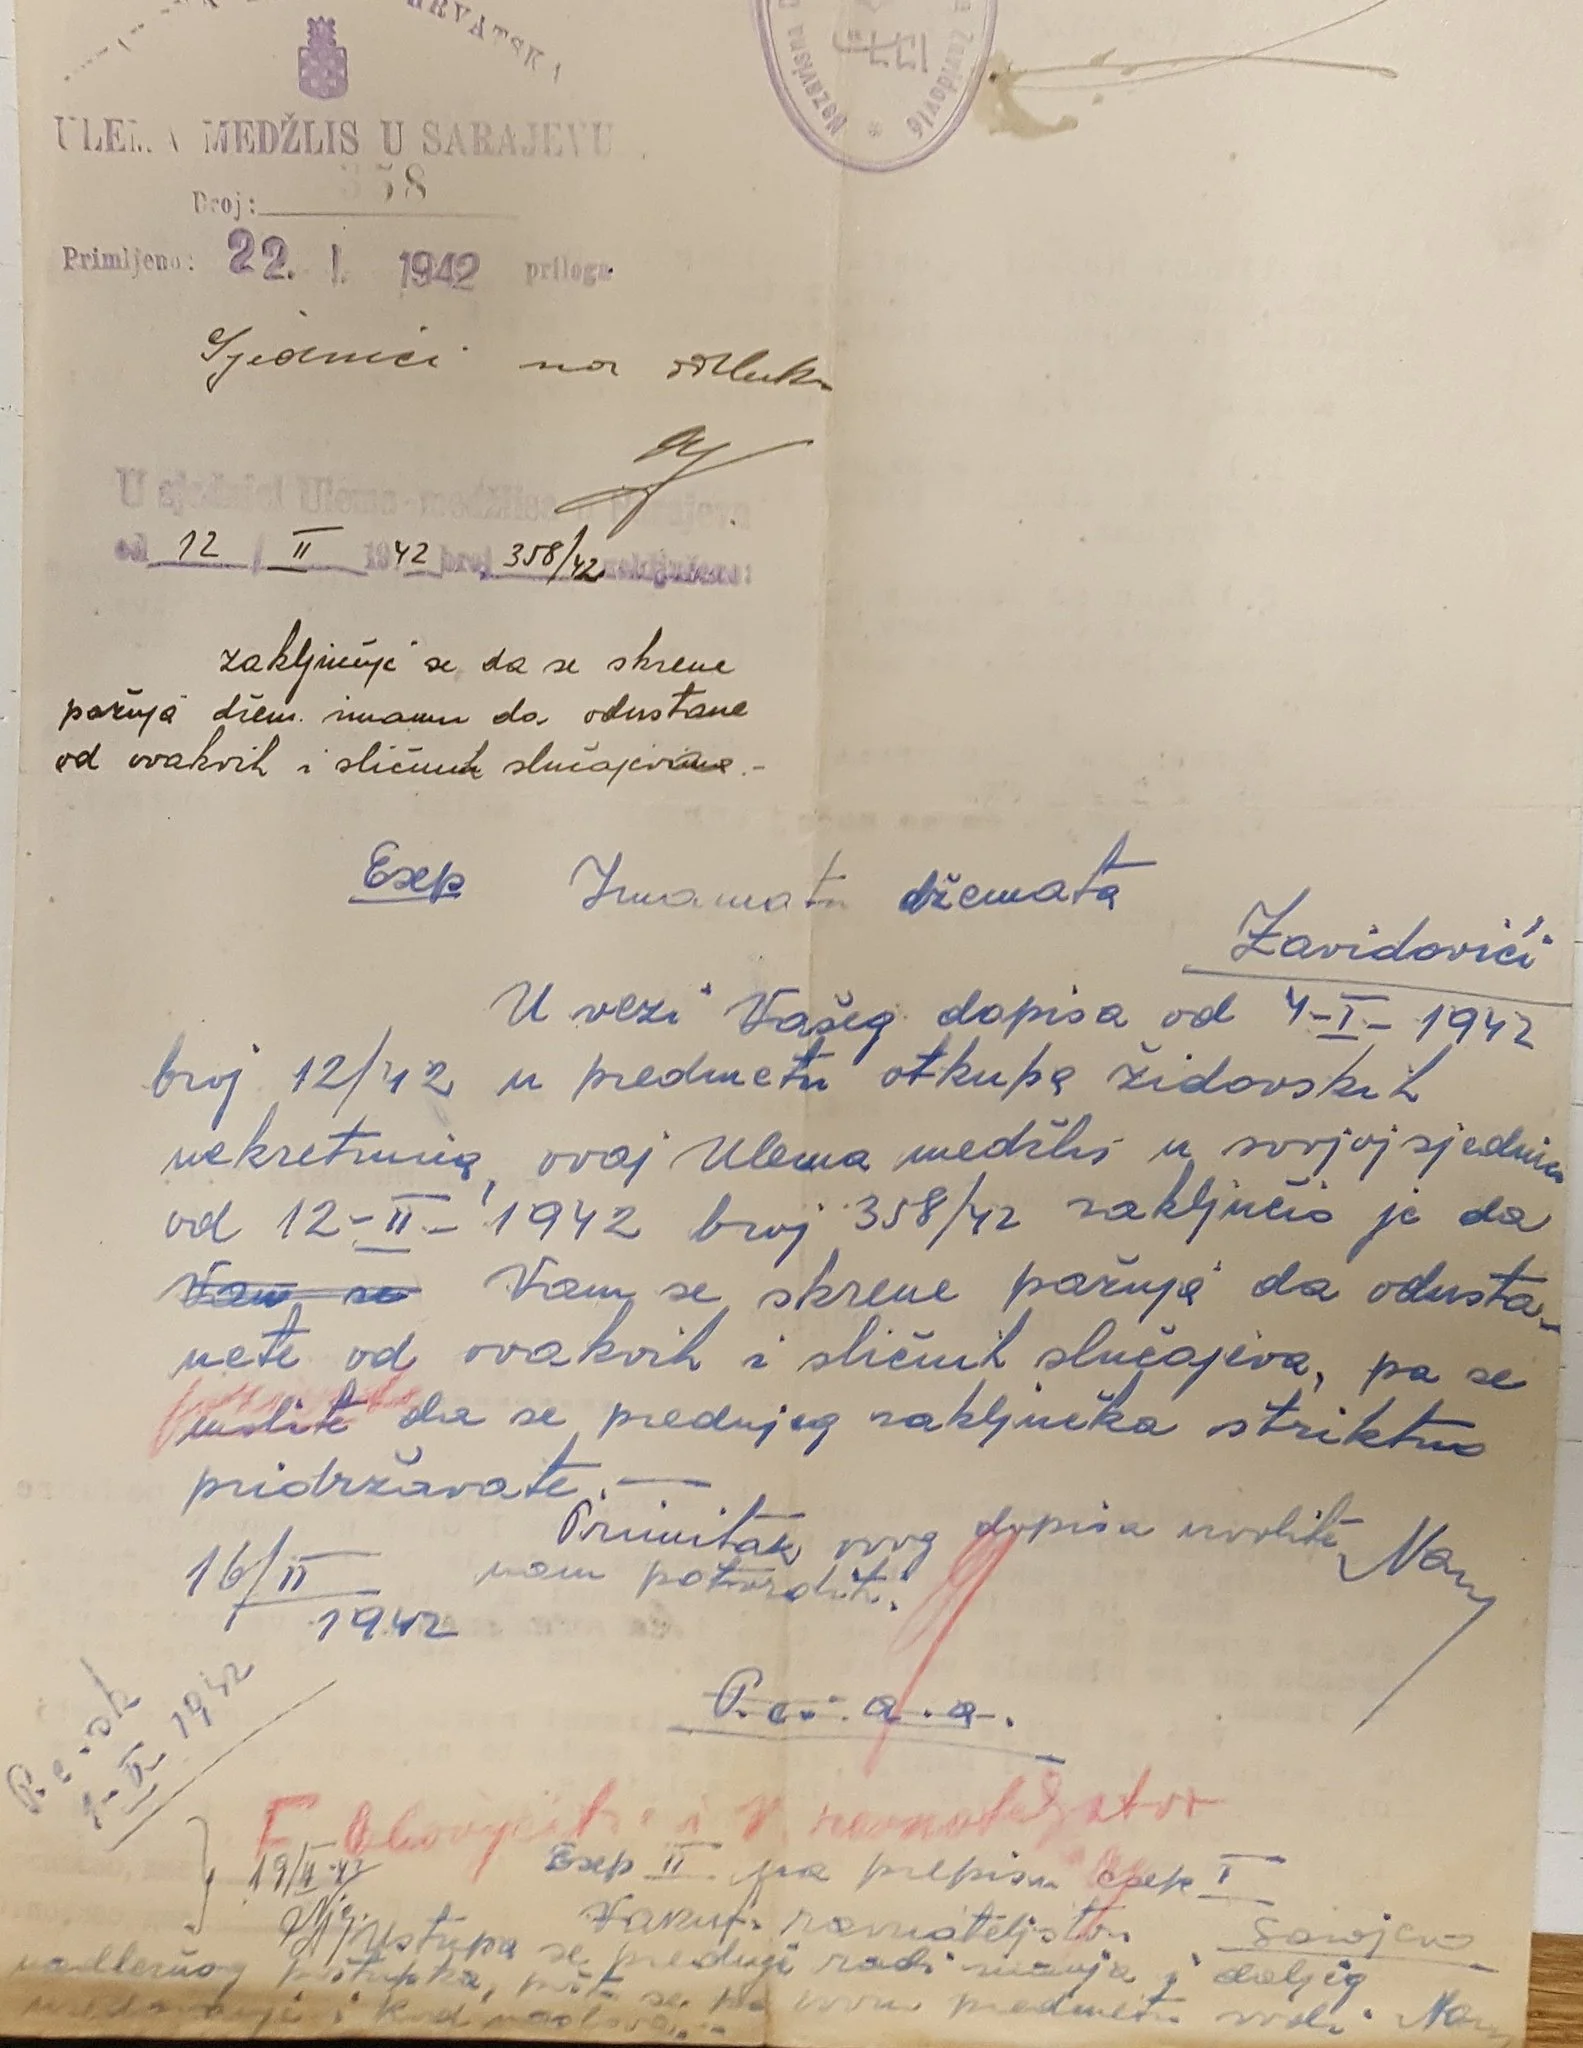 HRVATSKA
Nezavisna
Zavidović
ULEMA MEDŽLIS U SARAJEVU
Broj: 358
Primljeno: 22. I. 1942 priloga
Sjednici na odluku
U sjednici Ulema-medžlisa u Sarajevu
od 12 / II 1942 broj 358/42 zaključeno:
zaključuje se da se skrene
pažnja džem. imamu da odustane
od ovakvih i sličnih slučajeva.-
Exp Imamatu džemata
Zavidovići
U vezi Vašeg dopisa od 4-I-1942
broj 12/42 u predmetu otkupa židovskih
nekretnina, ovaj Ulema medžlis u svojoj sjednici
od 12-II-1942 broj 358/42 zaključio je da
Vam se Vam se skrene pažnja da odusta-
nete od ovakvih i sličnih slučajeva, pa se
molite da se prednjeg zaključka striktno
pridržavate.—
Primitak ovog dopisa izvolite
nam potvrditi.
16/II
1942
P. c. a.a.
II 1942
19/II 42
Exp II na prepisu Exp I
Vakuf. ravnateljstvu
Sarajevo
Ustupa se prednji radi znanja i daljeg
nadležnog postupka, pošto se po ovom predmetu vodi